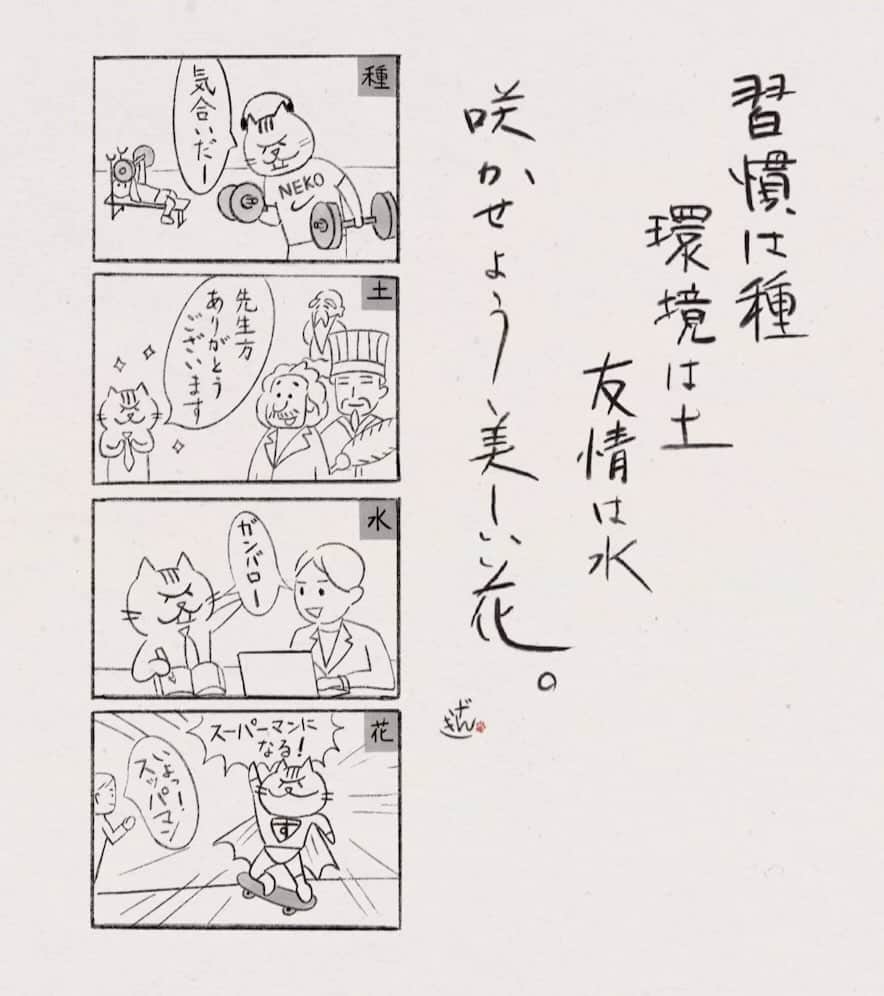 習慣は種
環境は土
友情は水
咲かせよう美しい花。
種
気合いだー
NEKO
土
先生方
ありがとう
ございます
水
ガンバロー
花
スーパーマンに
なる!
いよっ!
スッパマン
す